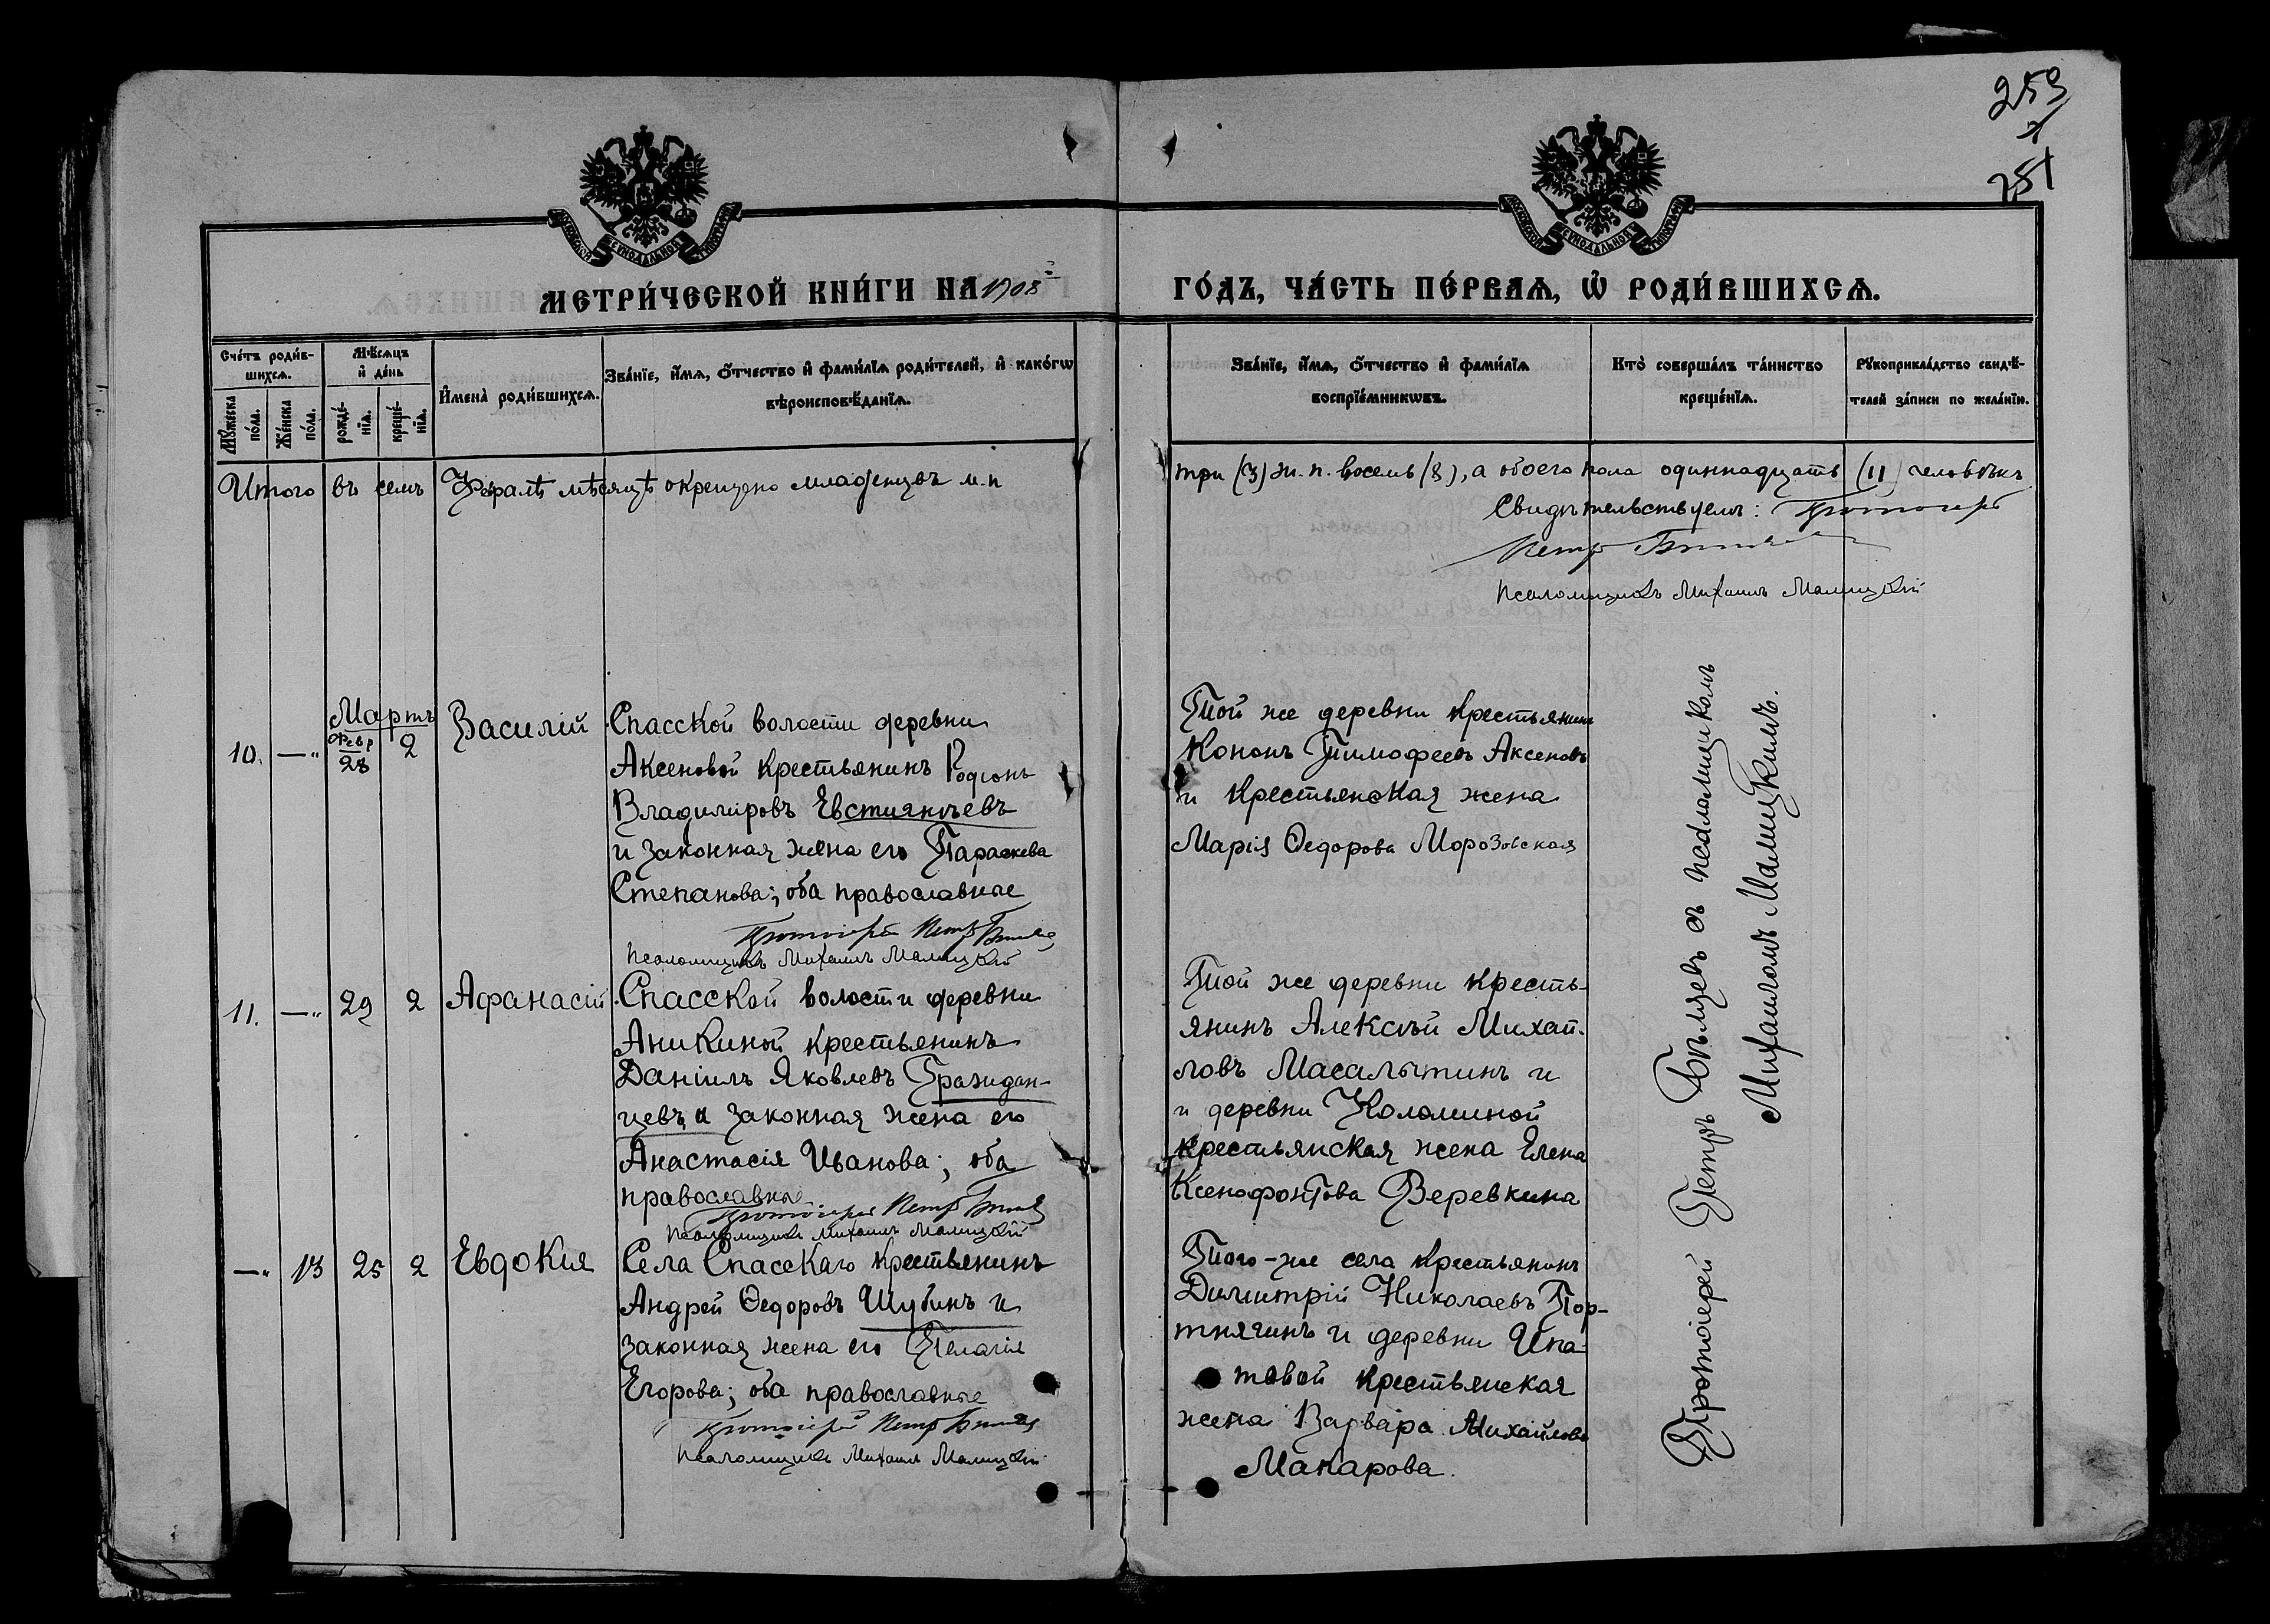 253
251
МЕТРИ́ЧЕСКОЙ КНИ́ГИ НА 1908 ГО́ДЪ, ЧА́СТЬ ПЕ́РВАѦ, Ѡ҆ РОДИ́ВШИХСѦ.
Сче́тъ роди́в-
шихсѧ.
Мꙋ́жеска по́ла.
Же́нска по́ла.
Мѣ́сѧцъ и҆ де́нь
рожде́-нїѧ.
креще́-нїѧ.
И҆мена̀ роди́вшихсѧ.
Зва́нїе, и҆́мѧ, ѻ҆́тчество и҆ фами́лїѧ роди́телей, и҆ како́гѡ
вѣроисповѣ́данїѧ.
Зва́нїе, и҆́мѧ, ѻ҆́тчество и҆ фами́лїѧ
воспрїе́мникѡвъ.
Кто̀ соверша́лъ та́инство
креще́нїѧ.
Рꙋкоприкла́дство свидѣ́-
телей за́писи по жела́нїю.
Итого въ семъ Февралѣ мѣсяцѣ окрещено младенцевъ м.п три (3) ж.п. восемь (8), а обоего пола одиннадцать (11) человѣкъ
Свидѣтельствуемъ: Протоіерей
Петръ
Псаломщикъ Михаилъ Малицкій
Мартъ
10. —„ Февр 28 2 Василій
Спасской волости деревни
Аксеновой крестьянинъ Родіонъ
Владиміровъ Евстигнѣевъ
и законная жена его Параскева
Степанова; оба православные
Протоіерей Петръ
Псаломщикъ Михаилъ Малицкій
Той же деревни крестьянинъ
Кононъ Тимофеевъ Аксеновъ
и крестьянская жена
Марія Ѳедорова Морозовская
11. —„ 29 2 Афанасій
Спасской волости деревни
Аникиной крестьянинъ
Даніилъ Яковлевъ Граждан-
цевъ и законная жена его
Анастасія Иванова; оба
православные
Протоіерей Петръ
Псаломщикъ Михаилъ Малицкій
Той же деревни кресть-
янинъ Алексѣй Михай-
ловъ Масалытинъ и
и деревни Коломиной
крестьянская жена Елена
Ксенофонтова Веревкина
—„ 13 25 2 Евдокия
Села Спасскаго крестьянинъ
Андрей Ѳедоровъ Шубинъ и
законная жена его Пелагія
Егорова; оба православные
Протоіерей Петръ
Псаломщикъ Михаилъ Малицкій
Того-же села крестьянинъ
Димитрій Николаевъ Пор-
тнягинъ и деревни Ипа-
товой крестьянская
жена Варвара Михайлова
Макарова.
Протоіерей Петръ съ псаломщикомъ
Михаиломъ Малицкимъ.